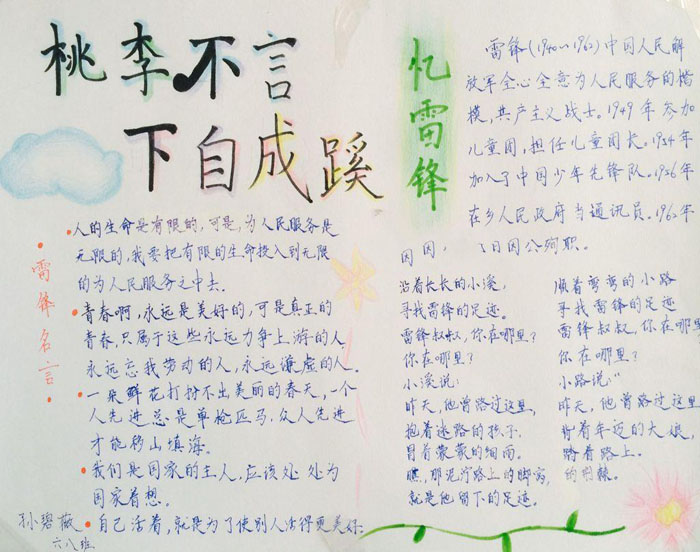 桃李不言
下自成蹊
雷锋名言
•人的生命是有限的,可是,为人民服务是
无限的,我要把有限的生命投入到无限
的为人民服务之中去。
•青春啊,永远是美好的,可是真正的
青春,只属于这些永远力争上游的人
永远忘我劳动的人,永远谦虚的人.
•一朵鲜花打扮不出美丽的春天,一个
人先进总是单枪匹马,众人先进
才能移山填海。
•我们是国家的主人,应该处处为
国家着想。
•自己活着,就是为了使别人活得更美好.
孙碧薇
六八班
忆雷锋
雷锋(1940~1962)中国人民解
放军全心全意为人民服务的楷
模,共产主义战士。1949年参加
儿童团,担任儿童团长。1954年
加入了中国少年先锋队。1956年
在乡人民政府当通讯员。1962年
日因公殉职。
沿着长长的小溪,
寻找雷锋的足迹。
雷锋叔叔,你在哪里?
你在哪里?
小溪说:
昨天,他曾路过这里,
抱着迷路的孩子,
冒着蒙蒙的细雨。
瞧,那泥泞路上的脚窝,
就是他留下的足迹。
顺着弯弯的小路
寻找雷锋的足迹
雷锋叔叔,你在哪里
你在哪里?
小路说:"
昨天,他曾路过这里
背着年迈的大娘,
踏着路上。
的荆棘。